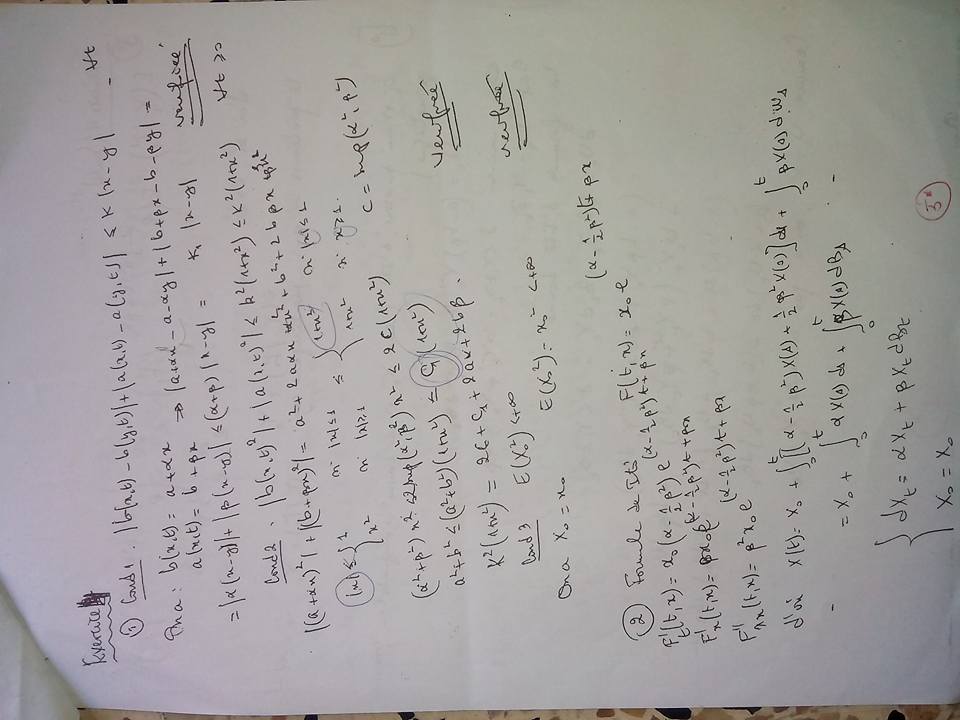 Exercice
① Cond1. |b(x,t) - b(y,t)| + |a(x,t) - a(y,t)| ≤ K |x-y| ∀t
On a : b(x,t) = a + αx
a(x,t) = b + βx ⇒ |a+αx - a - αy| + |b+βx - b - βy| =
= |α(x-y)| + |β(x-y)| ≤ (α+β) |x-y| = K₁ |x-y| verifieé
Cond2. |b(x,t)²| + |a(x,t)²| ≤ k²(1+x²) ≤ K²(1+x²) ∀t ≥ 0
|(a+αx)²| + |(b+βx)²| = a² + 2aαx + αx² + b² + 2bβx + β²x²
|x| ≤ { 1 si |x| ≤ 1 ≤ { 1+x² si |x| ≤ 1
x² si |x| ≥ 1 1+x² si x ≥ 1.
(α²+β²) x² ≤ 2 sup(α²,β²) x² ≤ 2C(1+x²) C = sup(α²,β²)
a²+b² ≤ (a²+b²)(1+x²) ≤ C₁(1+x²) verifieé
K²(1+x²) = 2C + C₁ + 2aα + 2bβ.
Cond 3 E(X₀²) < +∞ verifieé
On a X₀ = x₀ E(X₀²) = x₀² < +∞
② Formule de Itô F(t,x) = x₀ e^{(α - 1/2 β²)t + βx}
F't(t,x) = x₀(α - 1/2 β²) e^{(α - 1/2 β²)t + βx}
F'x(t,x) = βx₀e^{(α - 1/2 β²)t + βx}
F''xx(t,x) = β²x₀ e^{(α - 1/2 β²)t + βx}
d'où X(t) = X₀ + ∫₀ᵗ [(α - 1/2 β²) X(s) + 1/2 β² X(s)] ds + ∫₀ᵗ βX(s) dWs
= X₀ + ∫₀ᵗ αX(s) ds + ∫₀ᵗ βX(s) dBs
{ dXt = αXt + βXt dBt
X₀ = X₀